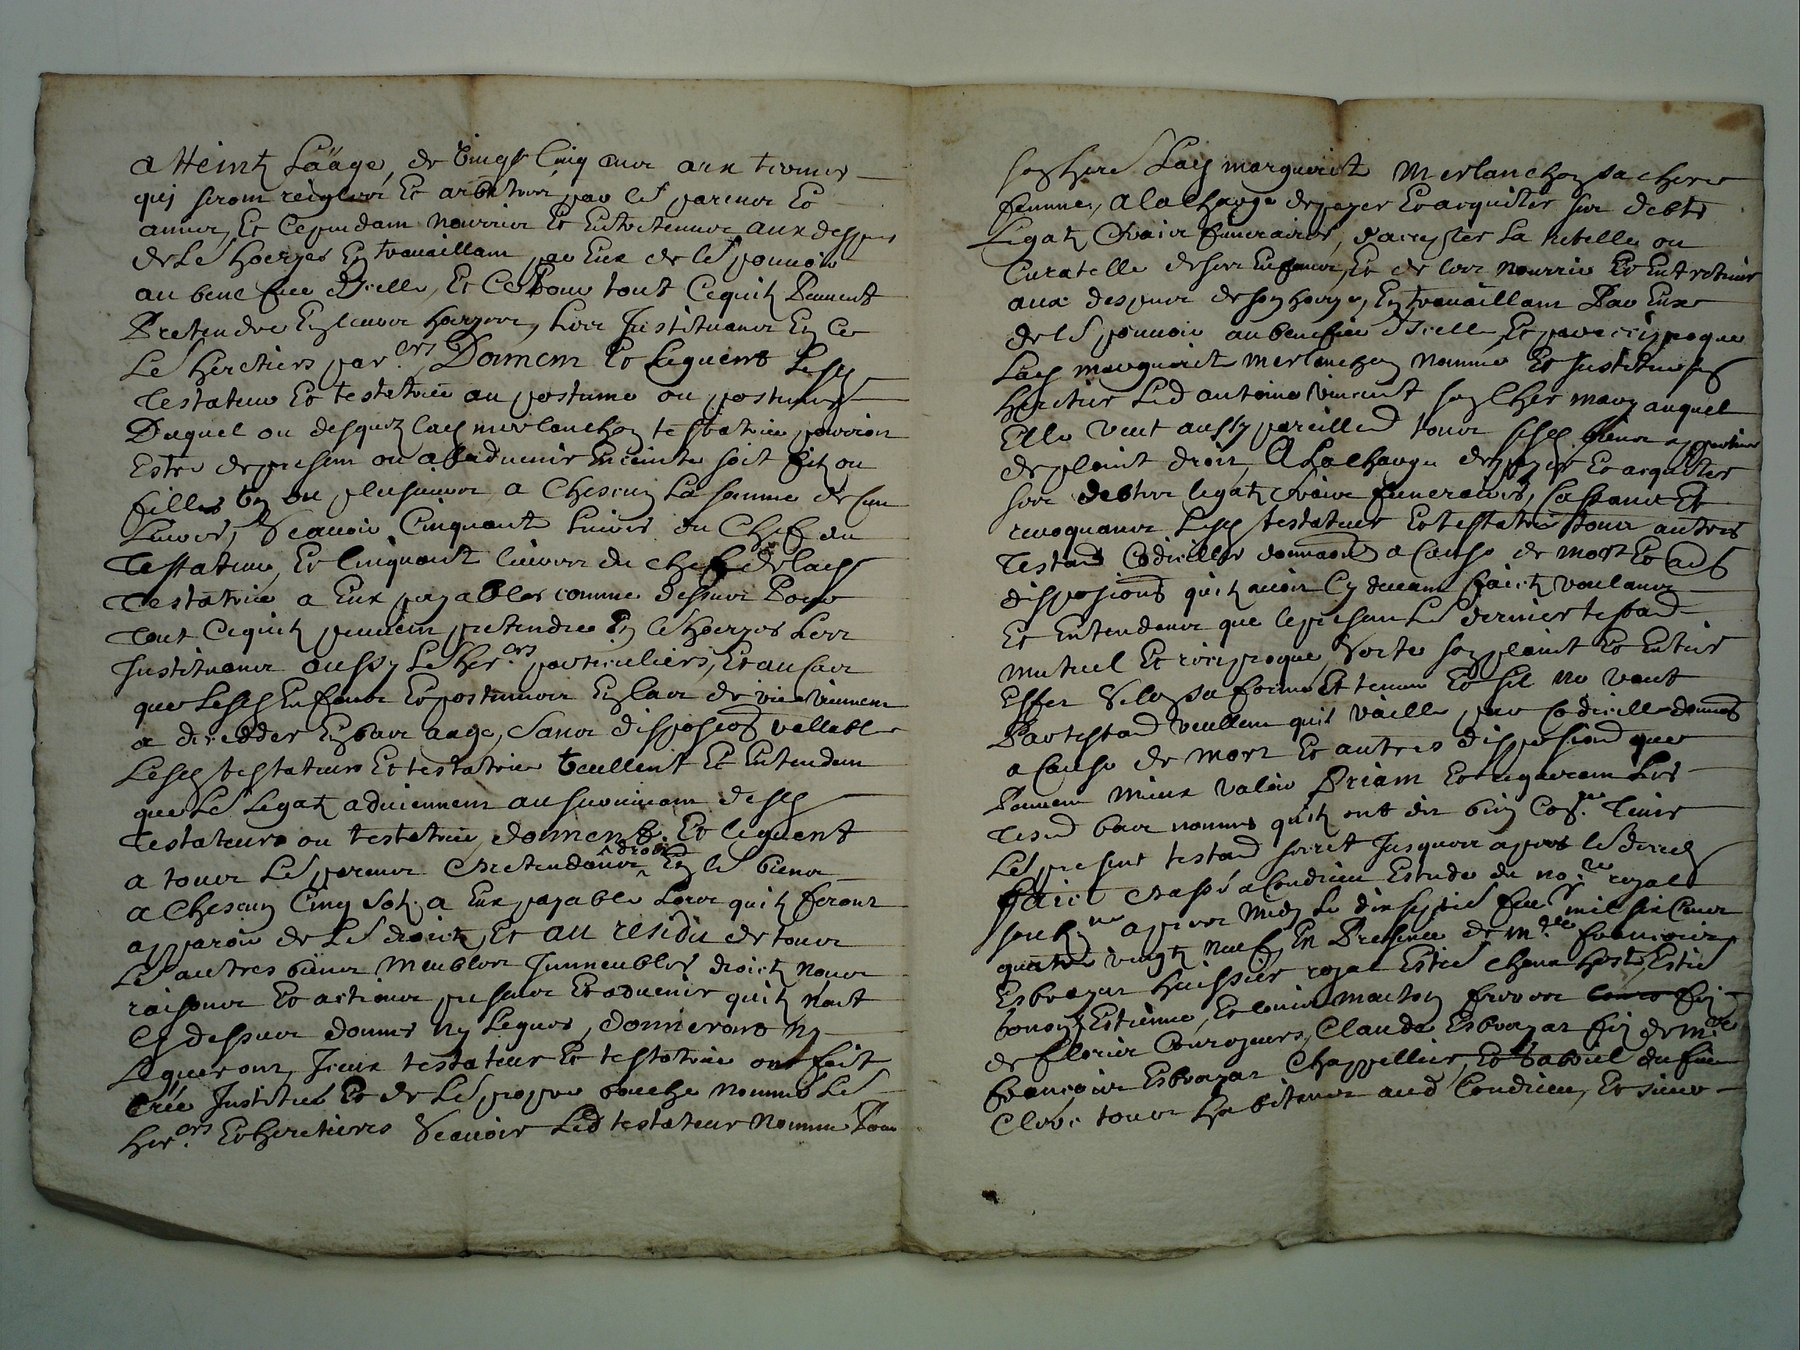 atteint Laäge, de vingt Cinq ans aux termes
quj seront reigles Et arbitres par les parens Et
amis, Et Cependam nourris Et Entretenus aux despens
de Le hoerye En travaillam par Eux de Le pouvoir
au benefice dJcelle, Et Ce Pour tout Cequilz Peuvent
Pretendre En leurs hoeryes, Les Jnstituans En Ce
Le heretiers par.ers Donnent Et Leguent Lesd
Testateur Et testatrice au postume ou postumes
Duquel ou desquelz lad merlanchon testatrice pourroit
Estre de presem ou a laduenir Enceinte soit filz ou
filles Un ou plusieurs, a Chescun La somme de Cent
Livres, Scauoir Cinquante livres du Chef du
Testateur, Et Cinquante livres du chef de lad
Testatrice a Eux payables comme dessus Pour
Tout Cequilz peuuem pretendre En le hoeryes Les
Jnstituans aussy Le her.ers particuliers, Et au Cas
que Lesd Enfans Et postumes En bas de vie vinssent
a deceder En bas aage, Sans disposer vallable
Lesd testateurs Et testatrice Veullent Et Entendent
que Le Legatz aduiennem au suruivam desd
Testateurs ou testatrice, donnent Et leguent
a tous Le parens Pretendans droit En le biens
a Chescun Cinq Solz a Eux payable Lors quilz feront
apparoir de Le droictz, Et au residu de tous
Le autres biens Meubles Jmmeubles droictz noms
raisons Et actions presens Et aduenir quilz nont
Cy dessus donnés ny Legues, donneront ny
Legueront, Jceux testateur Et testatrice ont fait
Créé Jnstitué Et de Le propre bouche nommé Le
her.ers Et heretieres Scauoir Led testateur Nomme Pour
son here Lad marguerite Merlanchon sa chere
femme, a la Charge de payer Et acquiter ses debts
Legatz frais funeraires, daccepter La tutelle ou
Curatelle de ses Enfans, Et de les nourrir Et Entretenir
aux despens de son hoerye, En travaillam Par Eux
de le pouvoir au benefice dJcelle, Et par reciproque
Lad marguerite merlanchon nomme Et Jnstitue son
heritier Led antoine Vincent son Cher mary auquel
Elle veut aussy pareillem tous sesd biens appartenir
de plaint droit, A La Charge de payer Et acquiter
ses debtes legatz frais funeraires, Cassans Et
reuoquans Lesd testateur Et testatrice tous autres
Testans Codicilles donnaons a Cause de Mort Et aus
disposions quilz auoir Cy deuam faictz voulans
Et Entendans que le presem Le dernier testam
mutuel Et reciproque, Sorte son plaint Et Entier
Effet Selon sa forme Et teneur Et sil ne vaut
Par testam veullent quil vaille, par Codicille donnaons
a Cause de Mort Et autres disposiond que
Pourront Mieux valoir Priant Et requeram Les
Tesmd bas nommes quilz ont dit bien Cog.re Tenir
Le present testam secret Jusques apres le deces
faict Et passé a Condrieu Estude du no.re royal
soub.ne apres Midy Le dix sept feu.r mil six Cens
quatre vingtz neuf En Presence de m.re francois
Esbrayar huissier royal Estie Chana hoste, Estie
Estienne, Et louis mouton freres filz
de florin Couroyeurs, Claude Esbrayar filz de M.re
francois Esbrayar Chappellier, Et Gabriel du fin
Clerc tous Habitans aud Condrieu, Et sieur